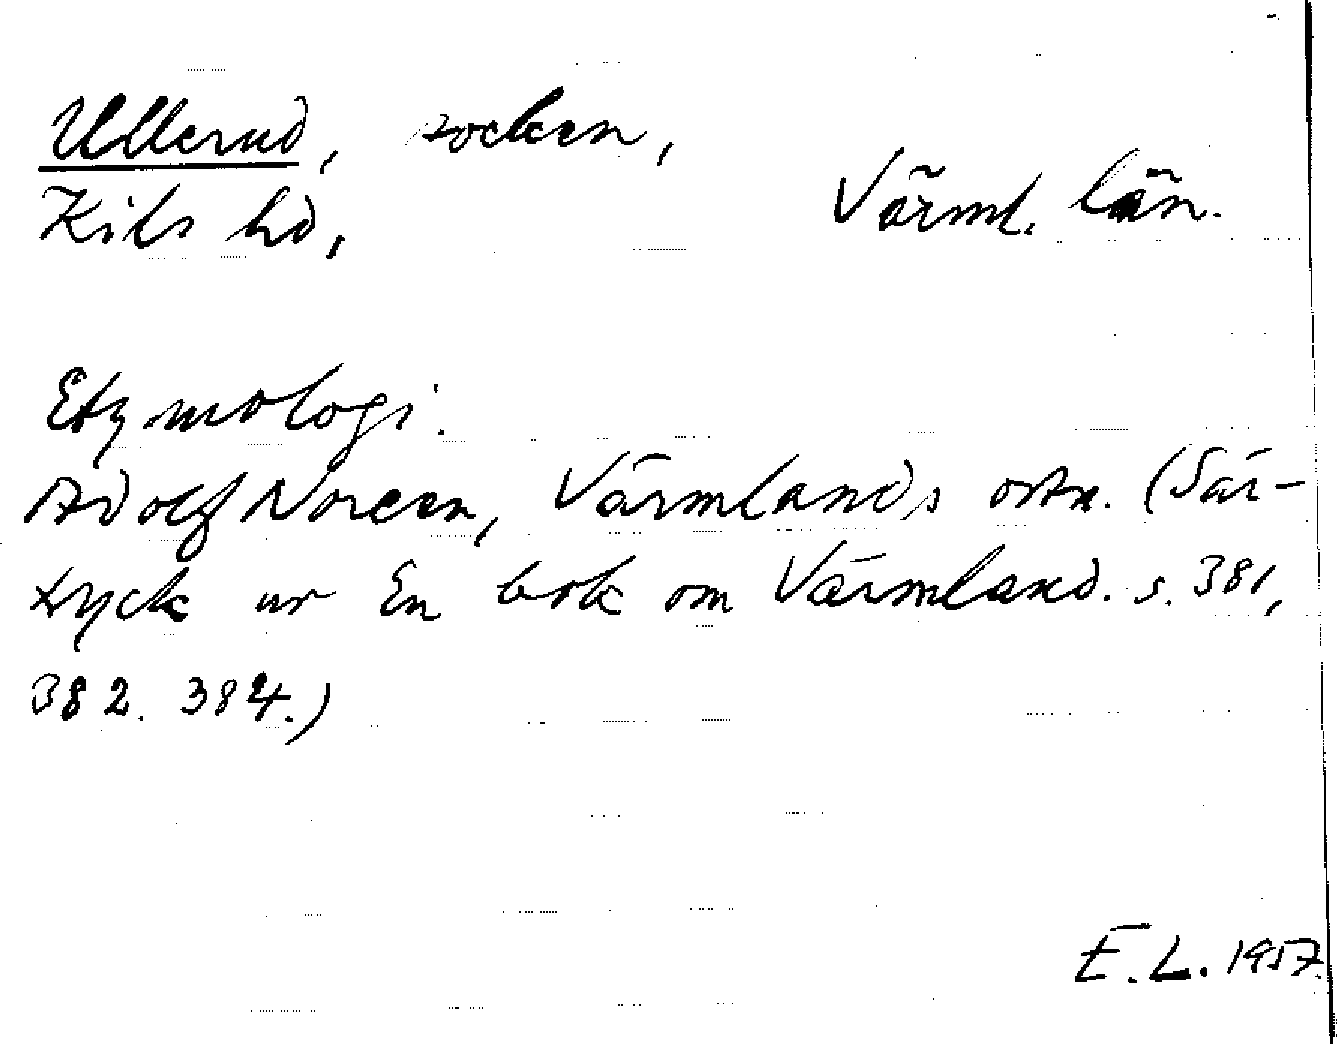 Ullerud, socken,
Kils hd,
Värml. län.
Etymologi.
Adolf Noreen, Värmlands ortn. (Sär-
tryck ur En bok om Värmland. s. 381,
382. 384.)
E. L. 1957